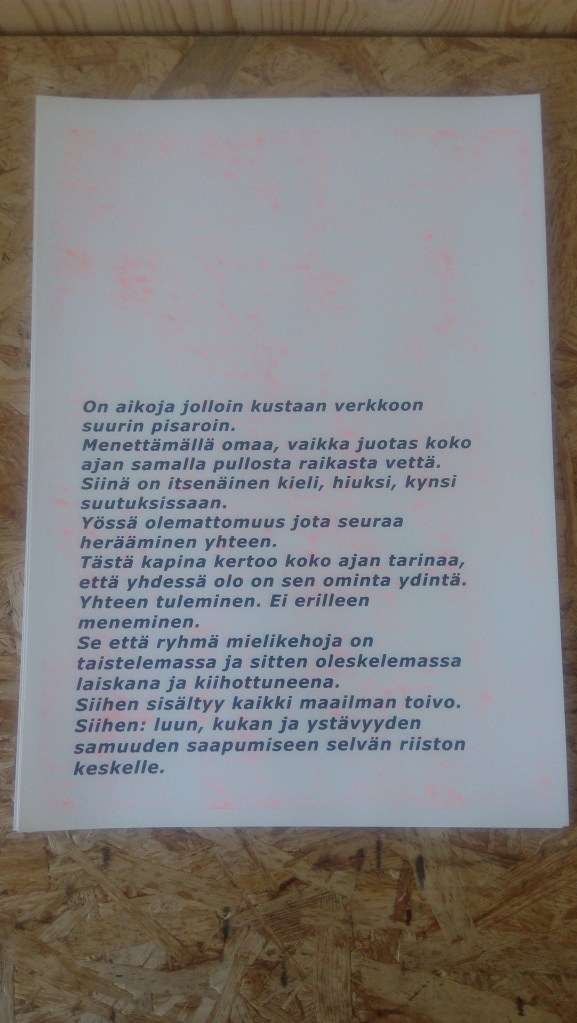 On aikoja jolloin kustaan verkkoon
suurin pisaroin.
Menettämällä omaa, vaikka juotas koko
ajan samalla pullosta raikasta vettä.
Siinä on itsenäinen kieli, hiuksi, kynsi
suutuksissaan.
Yössä olemattomuus jota seuraa
herääminen yhteen.
Tästä kapina kertoo koko ajan tarinaa,
että yhdessä olo on sen ominta ydintä.
Yhteen tuleminen. Ei erilleen
meneminen.
Se että ryhmä mielikehoja on
taistelemassa ja sitten oleskelemassa
laiskana ja kiihottuneena.
Siihen sisältyy kaikki maailman toivo.
Siihen: luun, kukan ja ystävyyden
samuuden saapumiseen selvän riiston
keskelle.